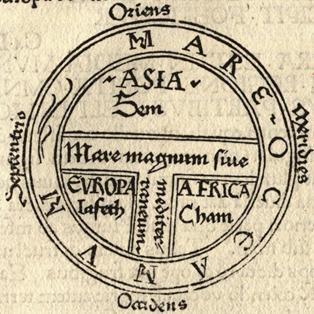 Oriens
MARE · OCEANVM
Septentrio
Meridies
ASIA
Sem
Mare magnum siue
mediter-
raneum
EVROPA
Iafeth
AFRICA
Cham
Occidens